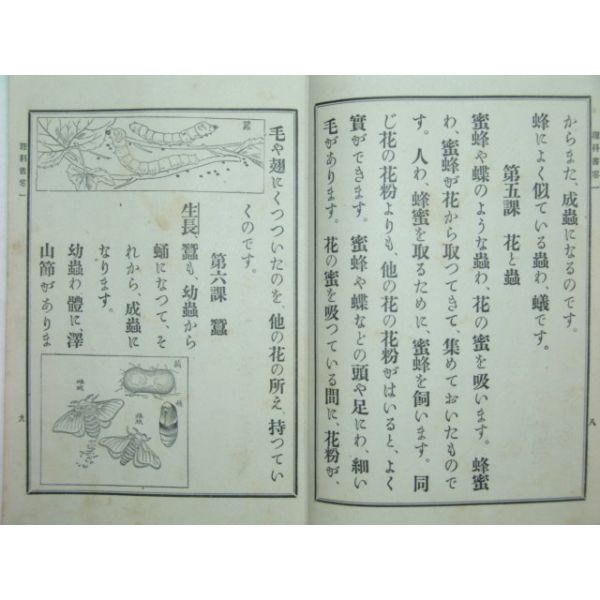 理科書卷一
からまた、成蟲になるのです。
蜂によく似ている蟲わ、蟻です。
第五課　花と蟲
蜜蜂や蝶のような蟲わ、花の蜜を吸います。蜂蜜
わ、蜜蜂が花から取つてきて、集めておいたもので
す。人わ、蜂蜜を取るために、蜜蜂を飼います。同
じ花の花粉よりも、他の花の花粉がはいると、よく
實ができます。蜜蜂や蝶などの頭や足にわ、細い
毛があります。花の蜜を吸つている間に、花粉が、
八
毛や翅にくつついたのを、他の花の所え、持つてい
くのです。
第六課　蠶
生長、蠶も、幼蟲から
蛹になつて、そ
れから、成蟲に
なります。
幼蟲わ體に、澤
山節がありま
蠶
繭
蛹
雌蛾
雄蛾
理科書卷一
九